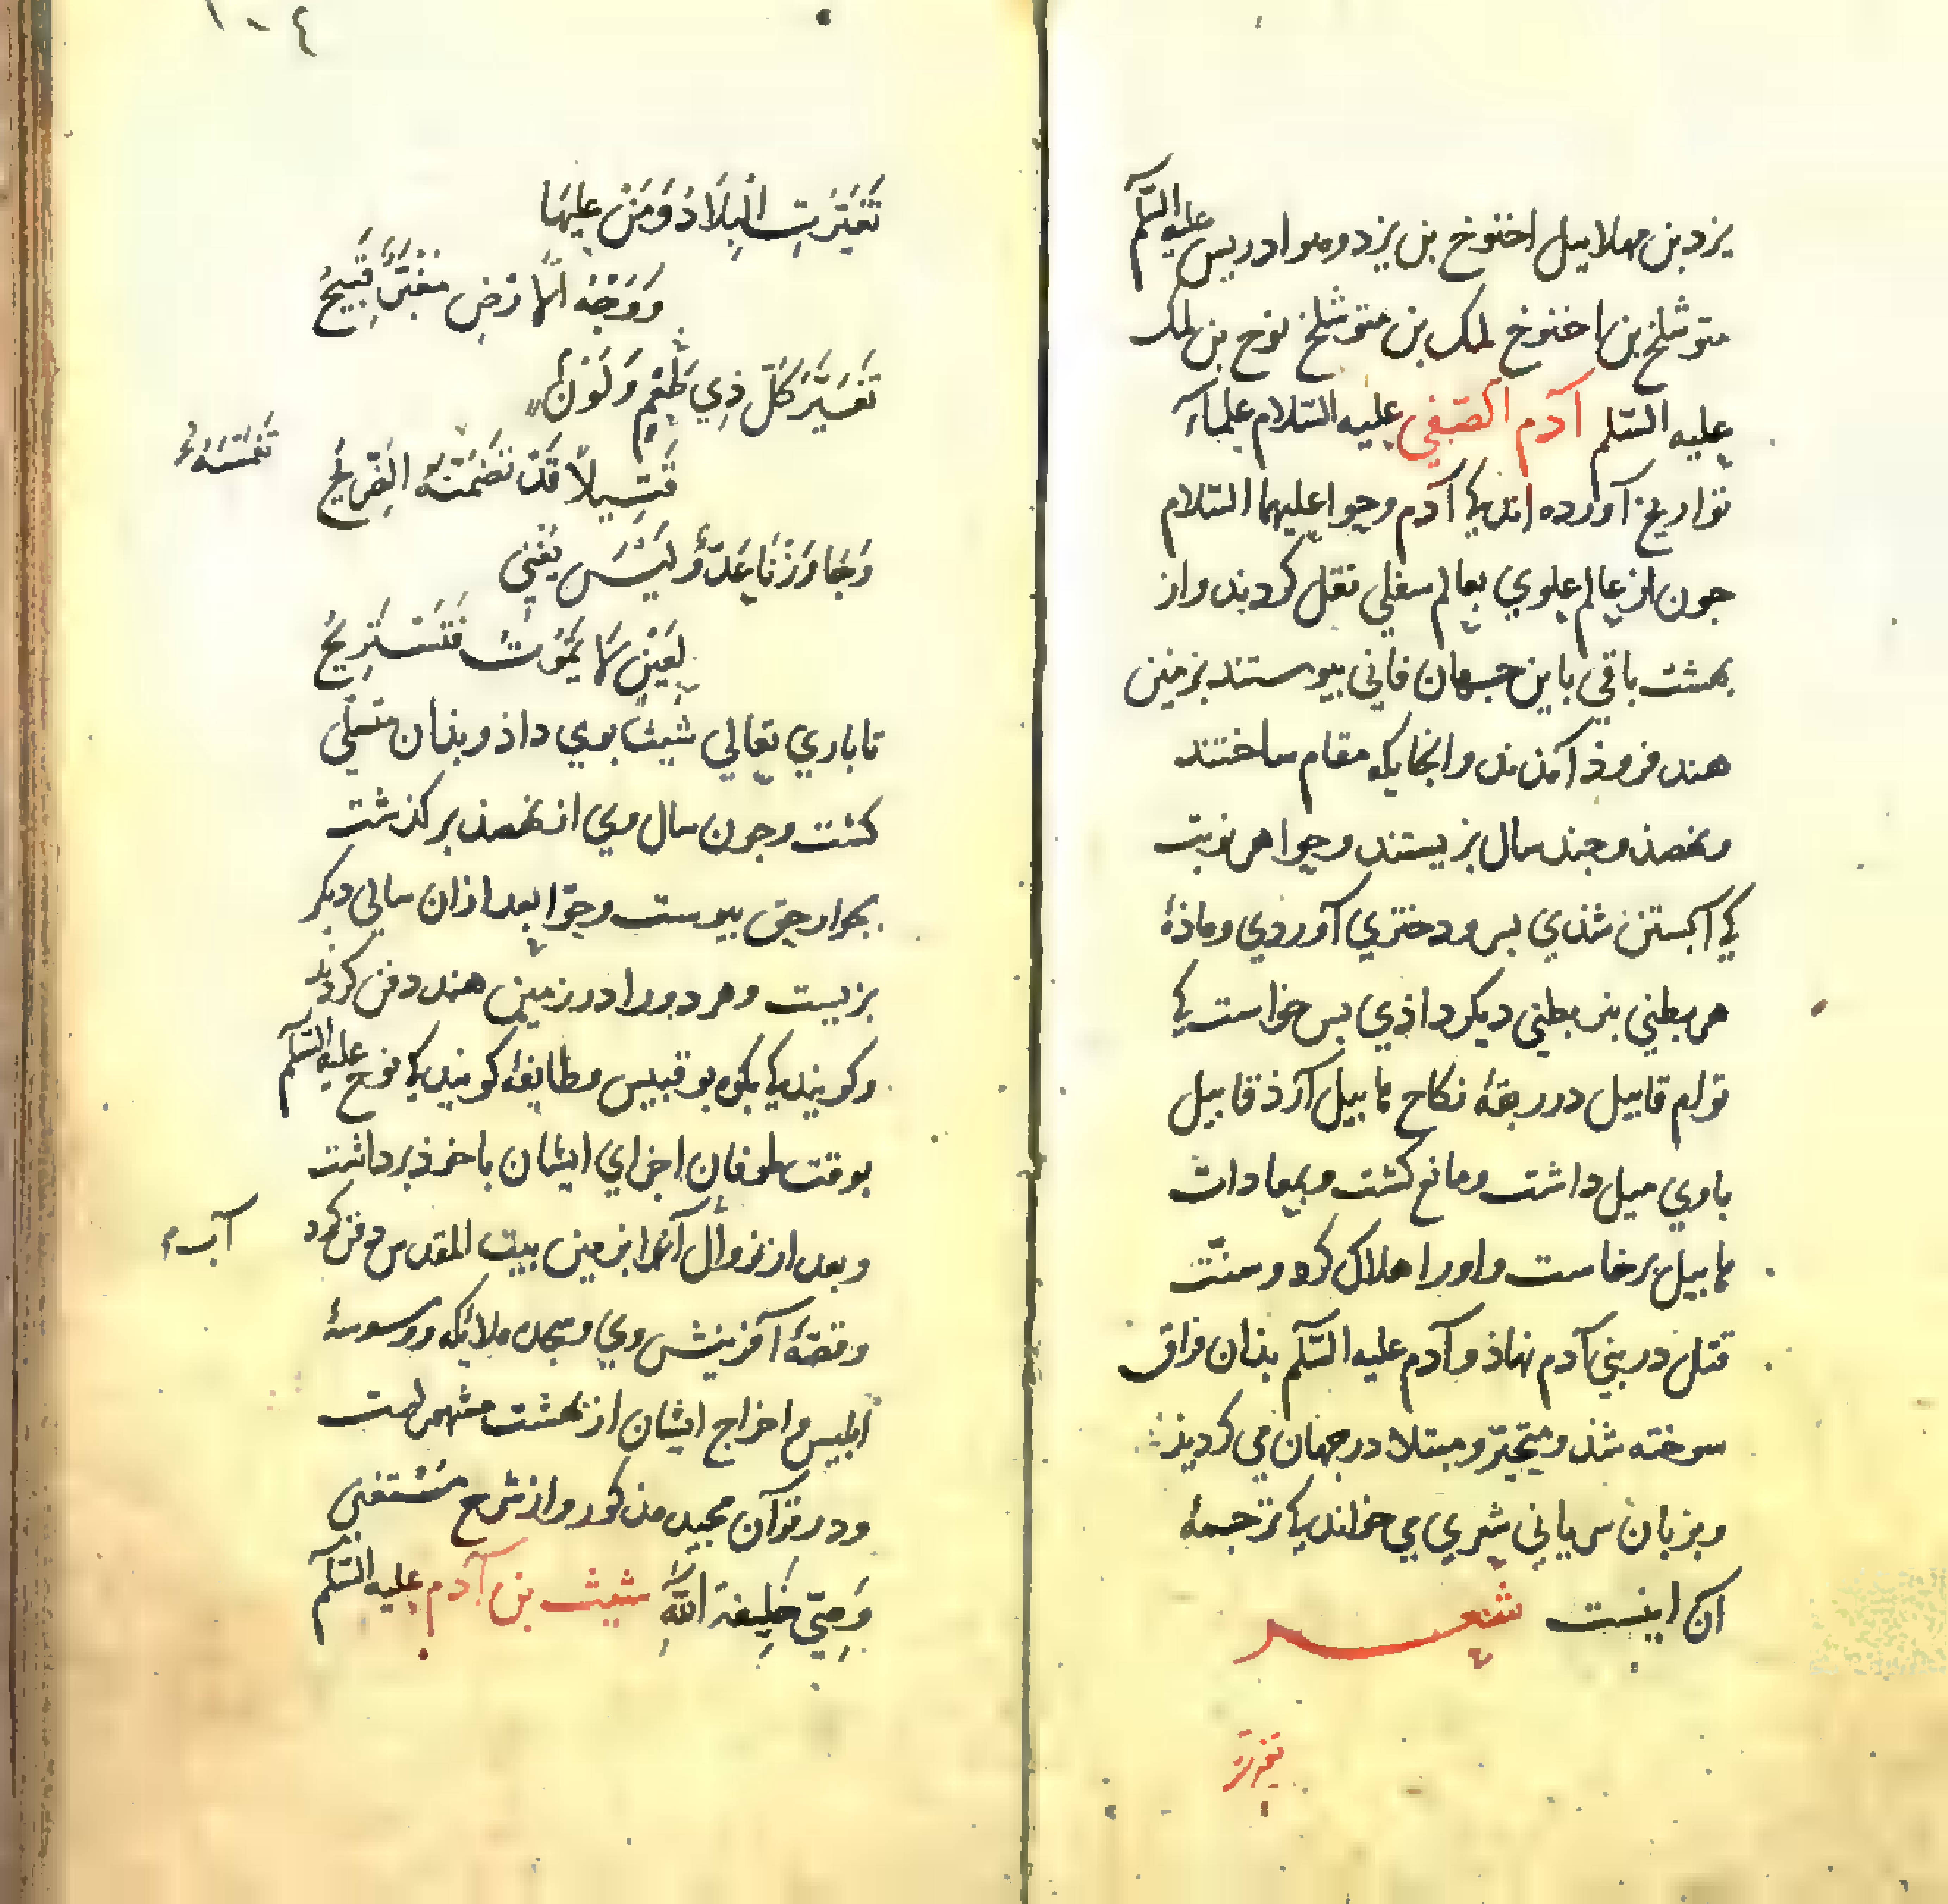 یزد بن مهلاییل اخنوخ بن یزد وهو ادریس علیه السّلم
متوشلخ بن اخنوخ لمک بن متوشلخ نوح بن لمک
علیه السّلم آدم الصّفی علیه السّلام علماء
تواریخ آورده اند کی آدم وحوا علیهما السّلام
جون از عالم علوی بعالم سفلی نقل کردند واز
بهشت باقی باین جهان فانی بیوستند بزمین
هند فروذ آمذند وانجایکه مقام ساختند
ونهصذ وجند سال بزیستند وحوا هر نوبت
کی آبستن شذی بسر ودختری آوردی وماذهٔ
هر بطنی بنر بطنی دیکر داذی بس خواست کی
توام قابیل در ربقهٔ نکاح هابیل آرذ قابیل
باوی میل داشت ومانع کشت وبمعادات
هابیل برخاست واورا هلاک کرد وسنّت
قتل در بنی آدم نهاذ وآدم علیه السّلم بذان فراق
سوخته شذ ومتحیّر ومبتلا در جهان می کردیذ
وبزبان سریانی شعری می خواند کی ترجمهٔ
آن اینست شعر
تغیرت
١٠٤
تَغَیَّرَتِ الْبِلَادُ وَمَنْ عَلَیهَا
وَوَجْهُ الْاَرْضِ مُغْبَرٌّ قَبِیحُ
تَغَیَّرَ كُلُّ ذِي طَعْمٍ وَلَوْنٍ
قَتِیلًا قَدْ تَضَمَّنَهُ الضَّرِیحُ
وَجَاوَرَنَا عَدُوٌّ لَیْسَ یَفْنَی
لَعِینٌ لَا یَمُوتُ فَنَسْتَرِیحُ
تا باری تعالی شیث بوی داذ وبذان متسلّی
کشت وجون سال وی از نهصذ برکذشت
بجوار حق بیوست وحوّا بعد ازان سالی دیکر
بزیست وهر دورا در زمین هند دفن کردند
وکویند کی بکوه بوقبیس وطایفهٔ کویند کی نوح علیه السّلم
بوقت طوفان اجزای ایشان با خوذ برداشت
وبعد از زوال آنرا بزمین بیت المقدس دفن کرد
آب
وقصّهٔ آفرینش وی وسجده ملایکه ووسوسهٔ
ابلیس واخراج ایشان از بهشت مشهورست
ودر قرآن مجید مذکور واز شرح مستغنی
وَصِیّ خَلِیفة اللّٰهِ شیث بن آدم علیه السّلم